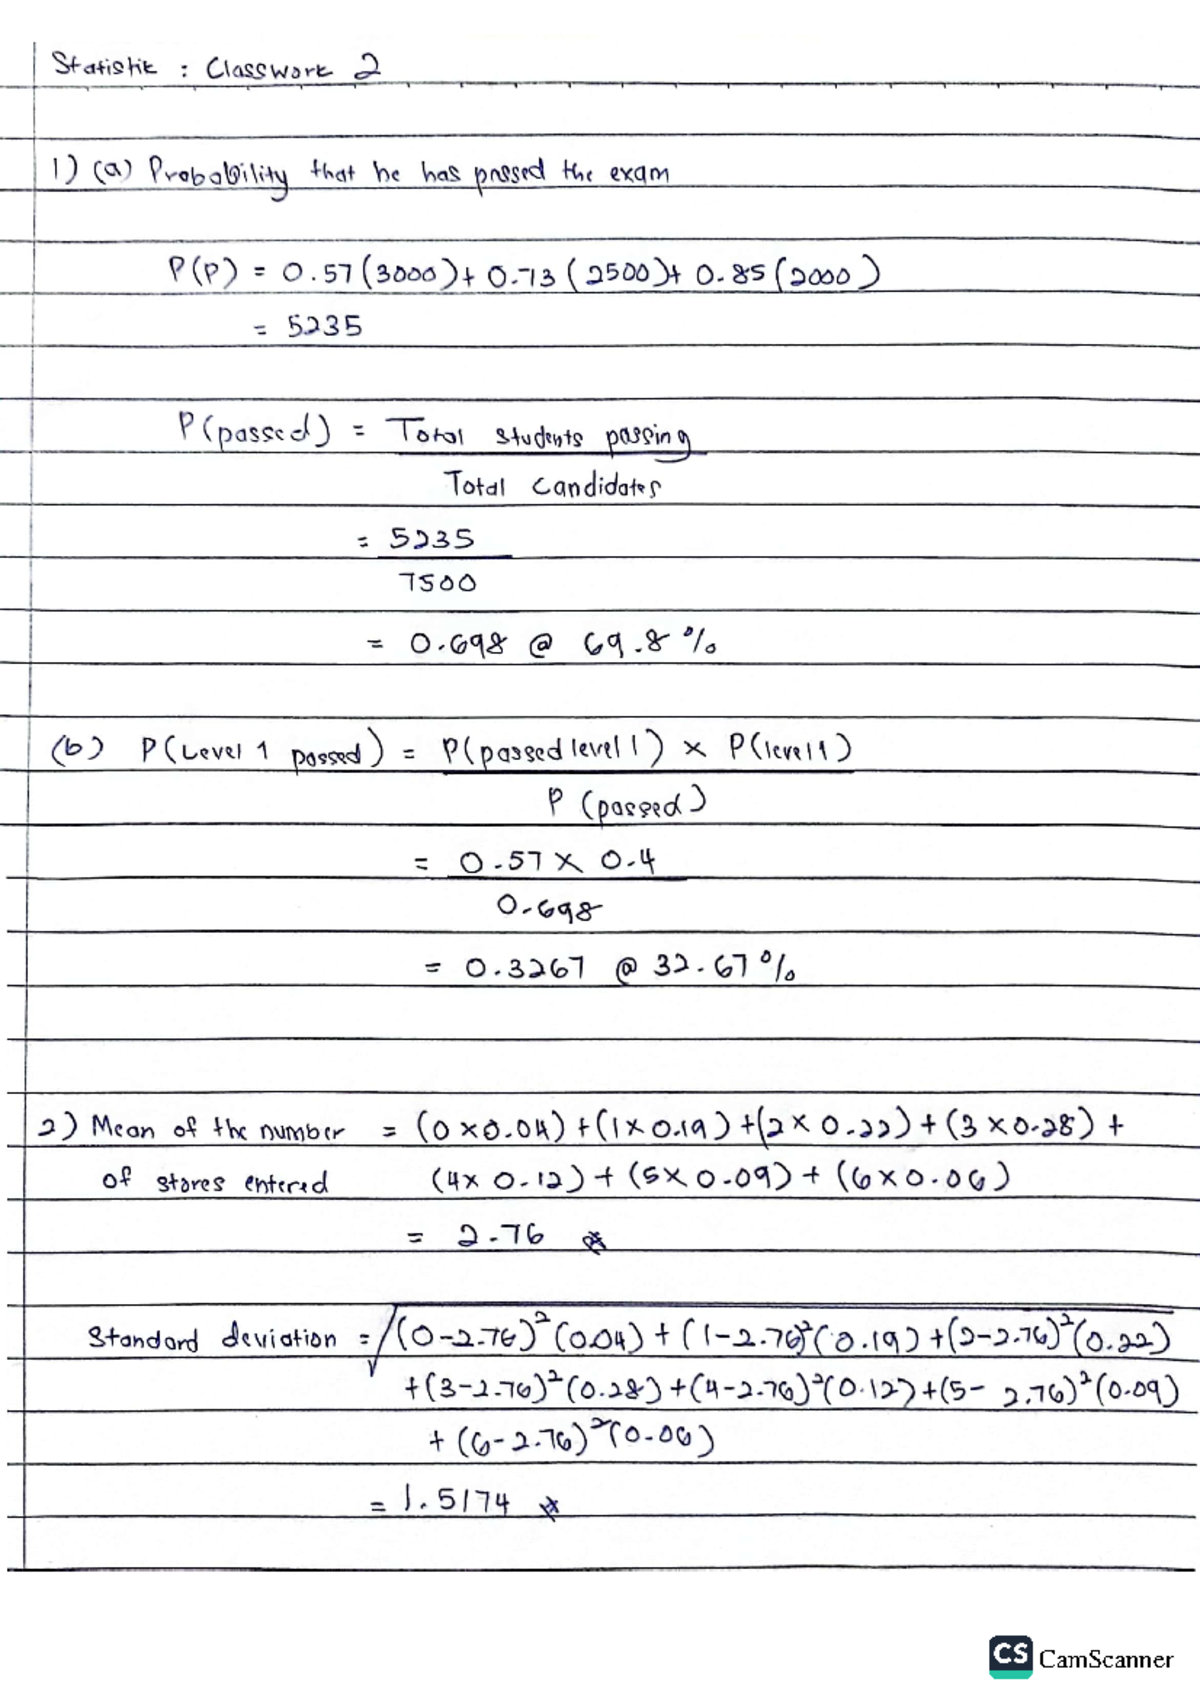 Statistik : Classwork 2
1) (a) Probability that he has passed the exam
P(P) = 0.57(3000)+ 0.73(2500)+ 0.85(2000)
= 5235
P(passed) = Total students passing
Total candidates
= 5235
7500
= 0.698 @ 69.8%
(b) P(Level 1 passed) = P(passed level 1) × P(level 1)
P (passed)
= 0.57 × 0.4
0.698
= 0.3267 @ 32.67%
2) Mean of the number = (0×0.04)+(1×0.19)+(2×0.22)+(3×0.28)+
of stores entered (4×0.12)+(5×0.09)+(6×0.06)
= 2.76
Standard deviation = √(0-2.76)²(0.04)+(1-2.76)²(0.19)+(2-2.76)²(0.22)
+(3-2.76)²(0.28)+(4-2.76)²(0.12)+(5-2.76)²(0.09)
+(6-2.76)²(0.06)
= 1.5174
CS CamScanner